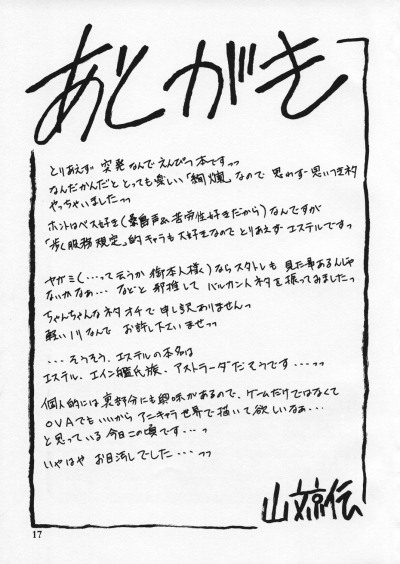 あとがき
とりあえず 突発なんでえんぴつ本ですっっ
なんだかんだととっても楽しい「絢爛」なので 思わず思いつきネタ
やっちゃいましたっっ
ホントはベス好き(
声&苦労性好きだから)なんですが
「歩く服務規定」的キャラも大好きなので とりあえず エステルですっ
ヤガミ(・・・って云うか 御本人様く)ならスタトレも 見た事あるんじゃ
ないかなぁ… などと 邪推して バルカン人ネタを振ってみましたっ
ちゃんちゃんなネタオチで申し訳ありませんっ
軽い
なんで お許し下さいませっっ
・・・そうそう、エステルの本名は
エステル、エイン艦氏族、アストラーダだそうです・・・っっ
個人的には裏部分にも興味があるので、ゲームだけではなくて
OVAでもいいから アニキャラ世界で描いて欲しいなぁ・・・
と思っている今日この頃です・・・っ
いやはや お目汚しでした・・・っっ
山
伝
17